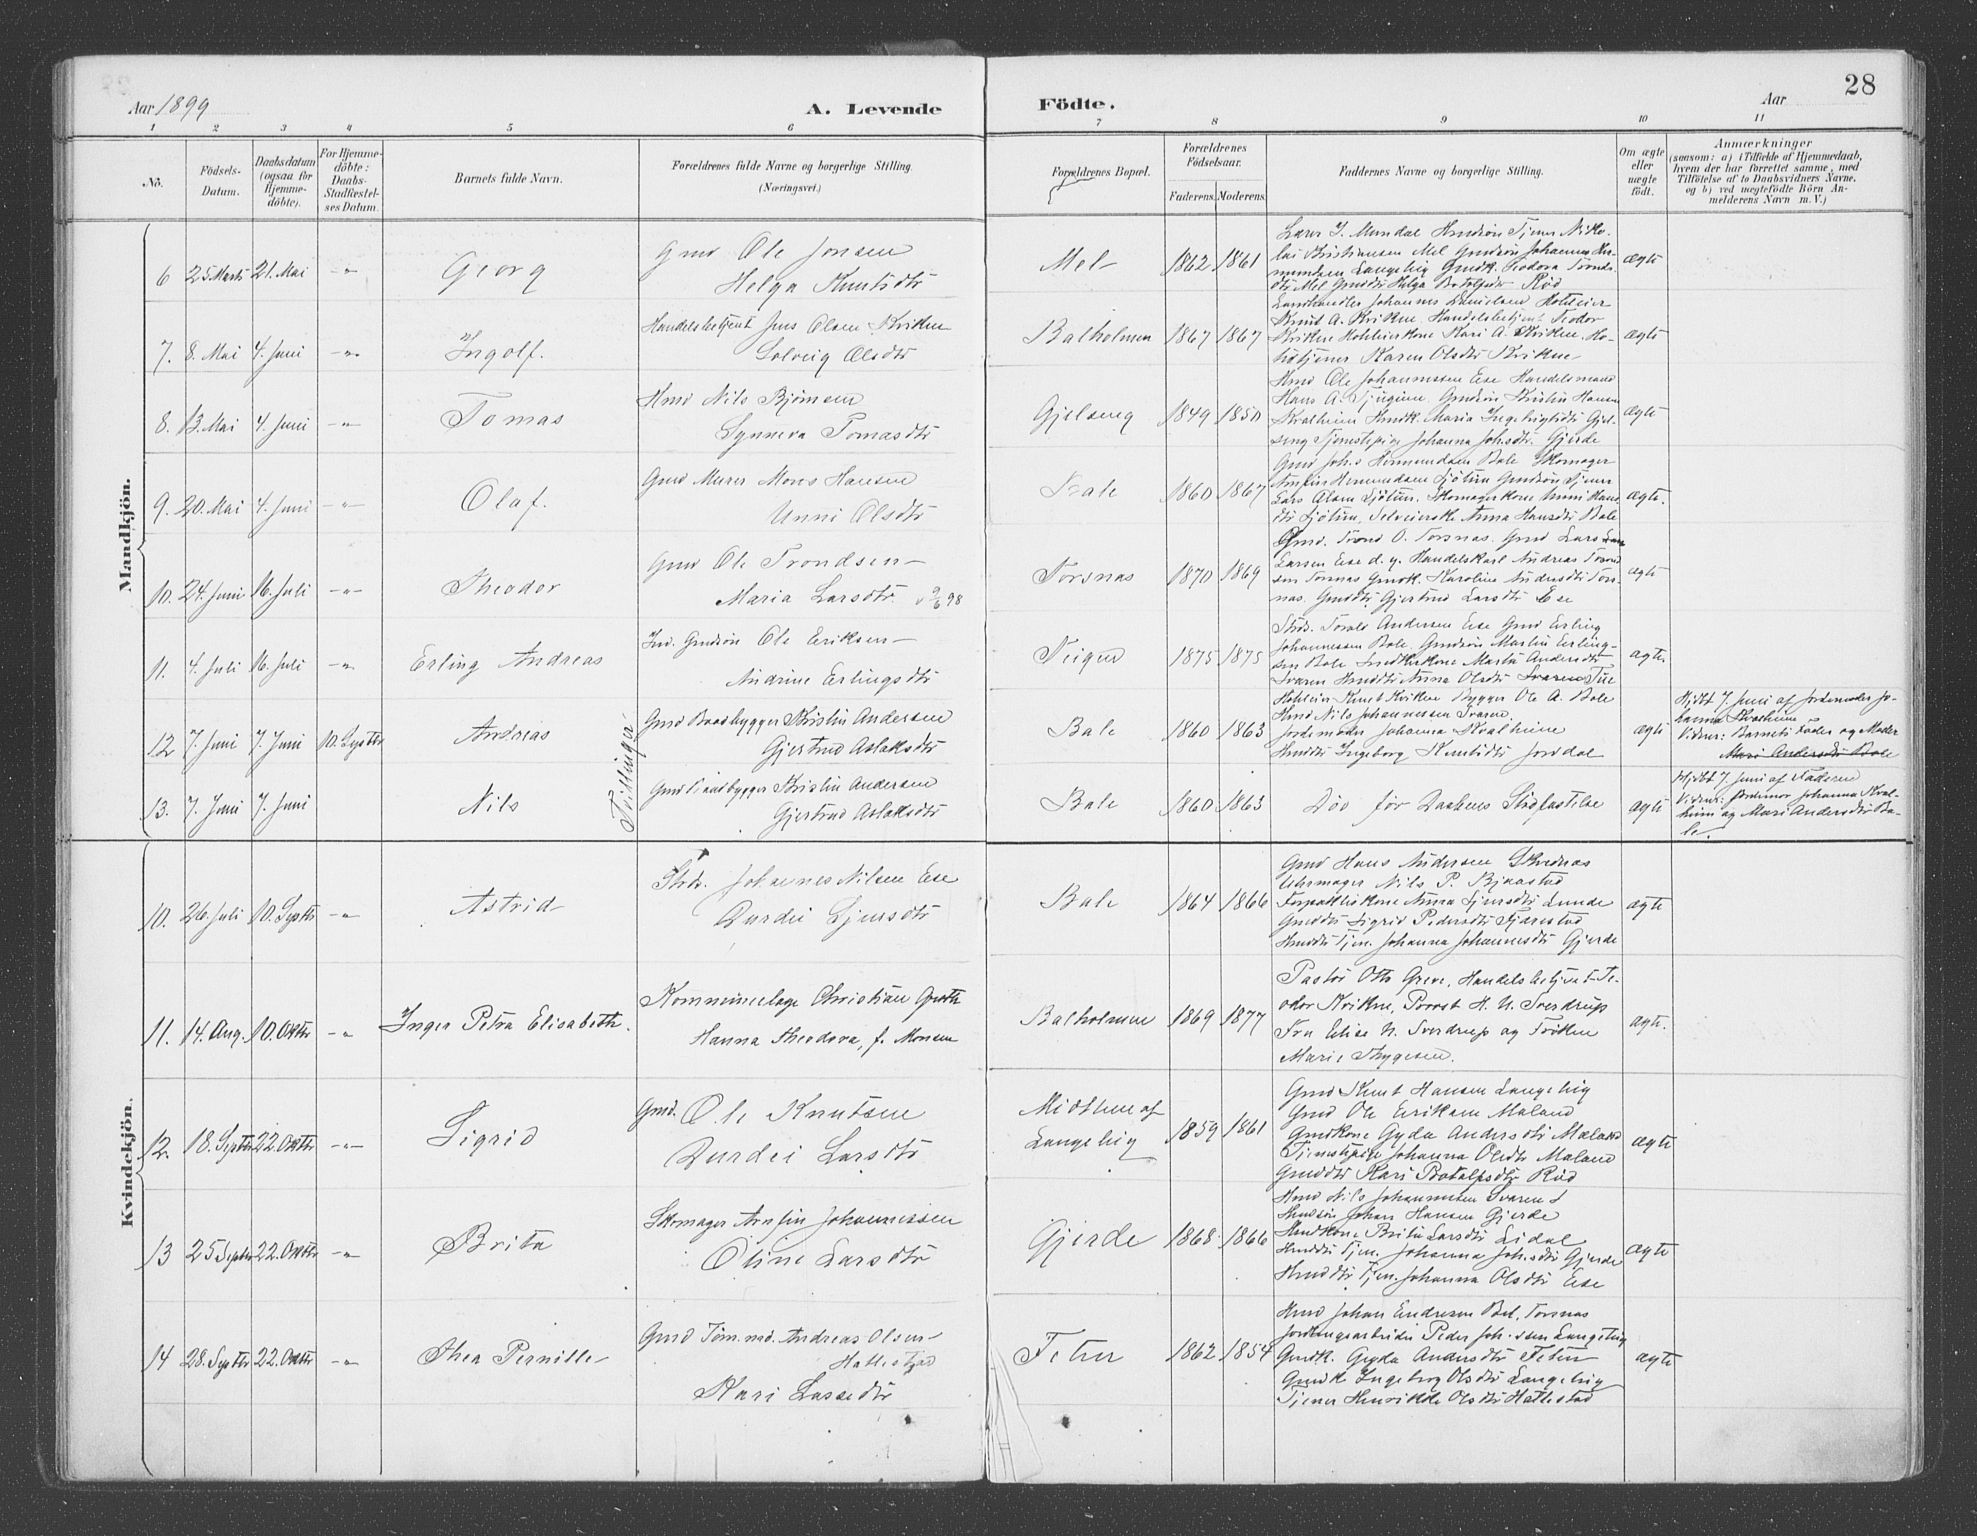 28
Aar 1899
A. Levende
Födte.
Aar
1 2 3 4 5 6 7 8 9 10 11
No.
Födsels-
Datum.
Daabsdatum
(ogsaa for
Hjemme-
döbte).
For Hjemme-
döbte:
Daabs-
Stadfæstel-
ses Datum.
Barnets fulde Navn.
Forældrenes fulde Navne og borgerlige Stilling.
(Næringsvei.)
Forældrenes Bopæl.
Forældrenes
Födselsaar.
Faderens. Moderens.
Faddernes Navne og borgerlige Stilling.
Om ægte
eller
uægte
födt.
Anmærkninger
(saasom: a) i Tilfælde af Hjemmedaab,
hvem der har forrettet samme, med
Tilföielse af to Daabsvidners Navne.
og b) ved uægtefödte Börn An-
melderens Navn m. V.)
Mandkjön.
6 25 Marts 21. Mai -"- Georg
Gmd Ole Jonsen
Helga Knutsdtr
Mel 1862 1861
Lærer J. Mundal Hmdsön Tjener Niko-
lai Kristiansen Mel Gmdsön Johannes Her-
mundsen Langebig Gmdk. Teodora Tronds-
dtr Mel Gmddtr Helga Botolfsdtr Röd
ægte
7. 8. Mai 4. Juni -"- Ingolf.
Handelsbetjent Jens Olsen Kvikne
Solveig Olsdtr
Balholmen 1867 1867
Landhandler Johannes Danielsen Hoteleier
Knut A. Kvikne Handelsbetjt Teodor
Kvikne Hoteleierkone Kari A. Kvikne Ho-
teltjener Karen Olsdtr Kvikne
ægte
8. 13. Mai 4. Juni -"- Tomas
Hmd Nils Björnsen
Synneva Tomasdtr
Gjelseng 1849 1850
Hmd Ole Johannessen Ese Handelsmand
Hans A. Tjugum Gmdsön Kristin Hansen
Kvalheim Hmdk. Maria Ingebrigtsdtr Gjel-
seng Tjenestepige Johanna Johsdtr. Gjerde
ægte
9. 20. Mai 4. Juni -"- Olaf.
Gmd Murer Mons Hansen
Unni Olsdtr
Bale 1860 1867
Gmd Joh.s Hermundsen Bale Skomager
Arnfin Hermundsen Sjötun Gmdsön Tjener
Lars Olsen Sjötun. Skomagerkone Unni Hans-
dtr Sjötun, Selveierske Anna Hansdtr Bale
ægte.
10. 24. Juni 16. Juli -"- Theodor
Gmd Ole Trondsen
Maria Larsdtr. v 9/6 98
Torsnas 1870 1869
Gmd. Trond O. Torsnas. Gmd Lars
Larsen Ese d. y. Handelskarl Andreas Trond-
sen Torsnas Gmdk. Karoline Andersdtr Tors-
nas. Gmddtr Gjertrud Larsdtr Ese
ægte
11. 4. Juli 16. Juli -"- Erling Andreas
Ind. Gmdsön Ole Eriksen
Andrine Erlingsdtr
Teigen 1875 1875
Strds. Torals Andersen Ese Gmd Erling
Johannessen Bale. Gmdsön Martin Erling-
sen Bale Indkskone Marta Andersdtr
Svaren Hmddtr Anna Olsdtr Svaren
ægte.
12 7. Juni 7. Juni 10. Septbr Andreas
Tvillinger
Gmd Baadbygger Kristin Andersen
Gjertrud Aslaksdtr
Bale 1860 1863
Hoteleier Knut Kvikne Bygger Ole A. Bale
Hmd Nils Johannessen Svaren
Jordemoder Johanna Kvalheim
Hmddtr Ingeborg Knutsdtr Jordal
ægte
Hjdbt 7. Juni af Jordemoder Jo-
hanna Kvalheim
Vidner: Barnets Fader og Moder
Mari Andersdtr Bale
13. 7. Juni 7. Juni Nils
Gmd Baadbygger Kristin Andersen
Gjertrud Aslaksdtr
Bale 1860 1863
Död för Daabens Stadfæstelse
ægte
Hjdbt 7. Juni af Faderen
Vidner: Jordemor Johanna Kval-
heim og Mari Andersdtr Ba-
le.
Kvindekjön.
10. 26. Juli 10. Septbr -"- Astrid
Strds. Johannes Nilsen Ese
Durdei Sjursdtr
Bale 1864 1866
Gmd Hans Andersen Skrednas
Uhrmager Nils P. Bjaastad
Forpagterkone Anna Sjursdtr Lunde
Gmddtr Sigrid Pedersdtr Fjærestad
Hmddtr Tjen. Johanna Johannesdtr Gjerde
ægte
11. 14. Aug. 10. Oktbr -"- Inger Petra Elisabeth.
Kommunelæge Christian Groth
Hanna Theodora, f. Monsen
Balholmen 1869 1877
Pastor Otto Greve, Handelsbetjent Te-
odor Kvikne, Provst H. U. Sverdrup
Fru Elise U. Sverdrup og Fröken
Marie Thygesen.
ægte.
12. 18. Septbr 22. Oktbr -"- Sigrid
Gmd. Ole Knutsen
Durdei Larsdtr
Midtlien af
Langebig
1859 1861
Gmd Knut Hansen Langebig
Gmd Ole Eriksen Maland
Gmdkone Gyda Andersdtr Maland
Tjenestpige Johanna Olsdtr Maland
Gmddtr Kari Botolfsdtr Röd
ægte
13 25 Septbr 22. Oktbr -"- Brita
Skomager Arnfin Johannessen
Oline Larsdtr
Gjerde 1868 1866
Hmd Nils Johannessen Svaren
Hmdsön Johan Hansen Gjerde
Hmdkone Brita Larsdtr Lidal
Hmddtr Tjen. Johanna Joh.sdtr Gjerde
Hmddtr Tjen. Johanna Olsdtr Ese
ægte
14 28. Septbr 22. Oktbr -"- Thea Pernille
Gmd Tömmd. Andreas Olsen
Hattestad
Kari Lassedtr
Feten 1862 1854
Hmd Johan Endresen Torsnas
Jordbrugsarbeider Peder Joh.ssen Langebig
Gmdk. Gyda Andersdtr Feten
Gmdk Ingeborg Olsdtr Langebig
Tjener Henrikke Olsdtr Hattestad
ægte